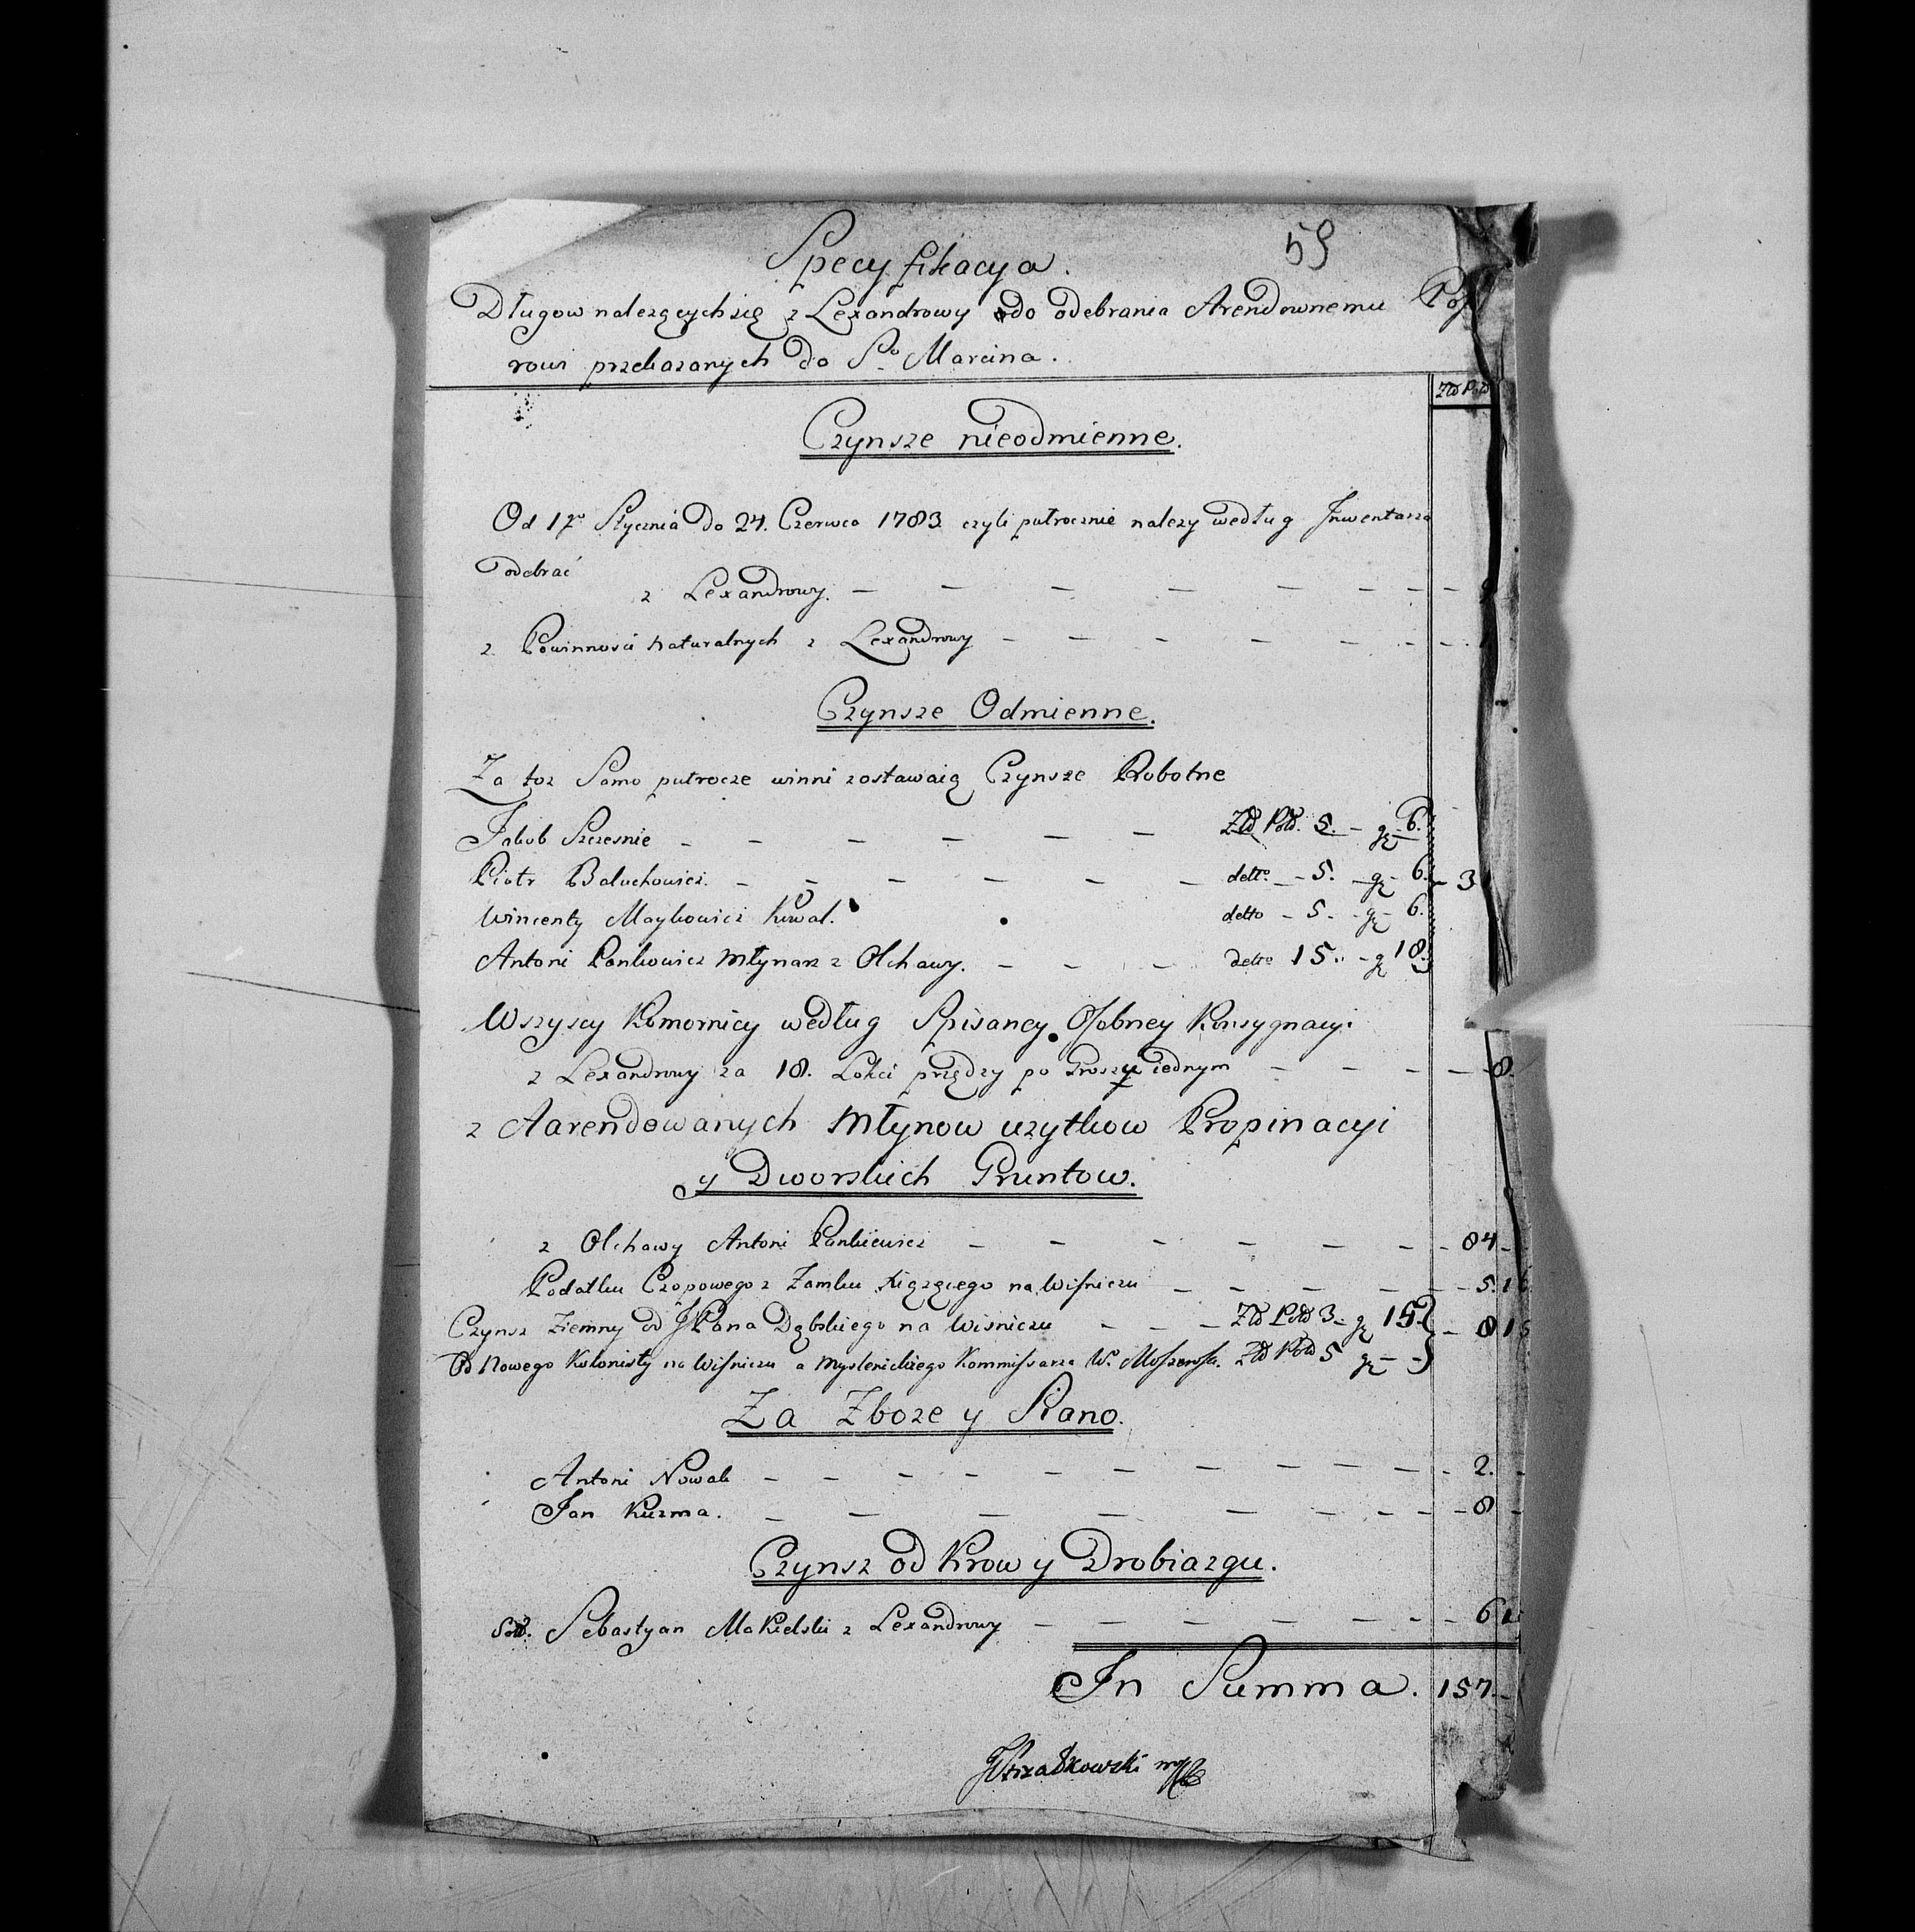 59
Specyfikacya.
Długow nalezących się z Lexandrowy do odebrania Arendownemu
rowi przekazanych do S. Marcina.
Złd Pold
Czynsze nieodmienne.
Od 1go Stycznia do 24. Czerwca 1783 czyli putrocznie nalezy według Inwentarza
odebrać
z Lexandrowy. — — — — — — — —
z Powinnosci naturalnych z Lexandrowy — — — — — — —
Czynsze Odmienne.
Za toz Samo putrocze winni zostawaią Czynsze Robotne
Jakob Szczesnie — — — — — — Złd Pold. 5. — gr 6.
Piotr Baluchowicz. — — — — — — detto. — 5. — gr — 6. — 3
Wincenty Maykowicz Kowal. detto — 5. — gr — 6.
Antoni Pankowicz Młynarz z Olchawy. — — — detto 15. — gr 18.
Wszyscy Komornicy według Spisaney Osobney Konsygnacyi
z Lexandrowy za 18. Łokci przędzy po Groszu iednym — — — — — 8.
z Aarendowanych Młynow uzytkow Propinacyi
y Dworskich Gruntow.
z Olchawy Antoni Pankiewicz — — — — — — — 84. —
Podatku Czopowego z Zamku Xiązęcego na Wiśniczu — — — — — 5. 16
Czynsz Ziemny od JPana Dąbskiego na Wisniczu — — — Złd Pold 3 — gr 15 — 8 15
Od Nowego Kolonisty na Wiśniczu a Myslenickiego Kommissarza Złd Pold 5 gr — —
Za Zboze y Siano.
Antoni Nowak — — — — — — — — — — 2. —
Jan Kuzma. — — — — — — — — 8 —
Czynsz od Krow y Drobiazgu.
Sebastyan Makielski z Lexandrowy — — — — — — — 6
In Summa. 157. —